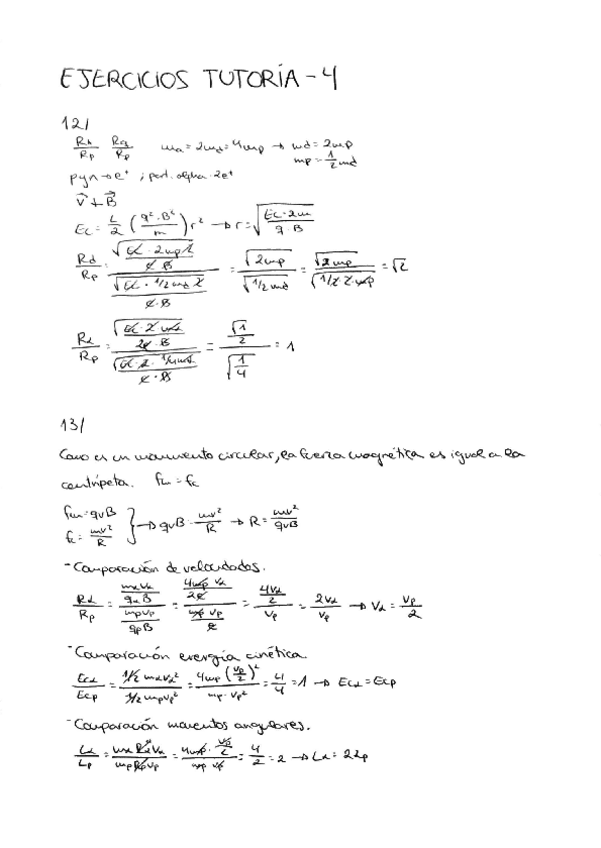 EJERCICIOS TUTORÍA - 4
12/
Rd/Rp Rα/Rp mα = 2md = 4mp → md = 2mp
mp = 1/2 md
p y n → e⁺ ; part. alpha · 2e⁺
v ⊥ B
Ec = 1/2 (q²·B²/m) r² → r = √(Ec·2m)/(q·B)
Rd/Rp = (√(Ec·2mp·2)/(e·B))/(√(Ec·1/2 md·2)/(e·B)) = √(2mp)/√(1/2 md) = √(2mp)/√(1/2·2·mp) = √2
Rα/Rp = (√(Ec·2·mα)/(2e·B))/(√(Ec·2·1/4mα)/(e·B)) = (√1/2)/√(1/4) = 1
13/
Como es un movimiento circular, la fuerza magnética es igual a la
centrípeta. fm = fc
fm = qvB
fc = mv²/R } → qvB = mv²/R → R = mv²/qvB
- Comparación de velocidades.
Rα/Rp = (mαvα/qαB)/(mpvp/qpB) = (4mp vα/2e)/(mp vp/e) = (4vα/2)/vp = 2vα/vp → vα = vp/2
- Comparación energía cinética
Ecα/Ecp = (1/2 mαvα²)/(1/2 mpvp²) = (4mp (vp/2)²)/(mp·vp²) = 4/4 = 1 → Ecα = Ecp
- Comparación momentos angulares.
Lα/Lp = (mα Rα vα)/(mp Rp vp) = (4mp · vp/2)/(mp vp) = 4/2 = 2 → Lα = 2Lp